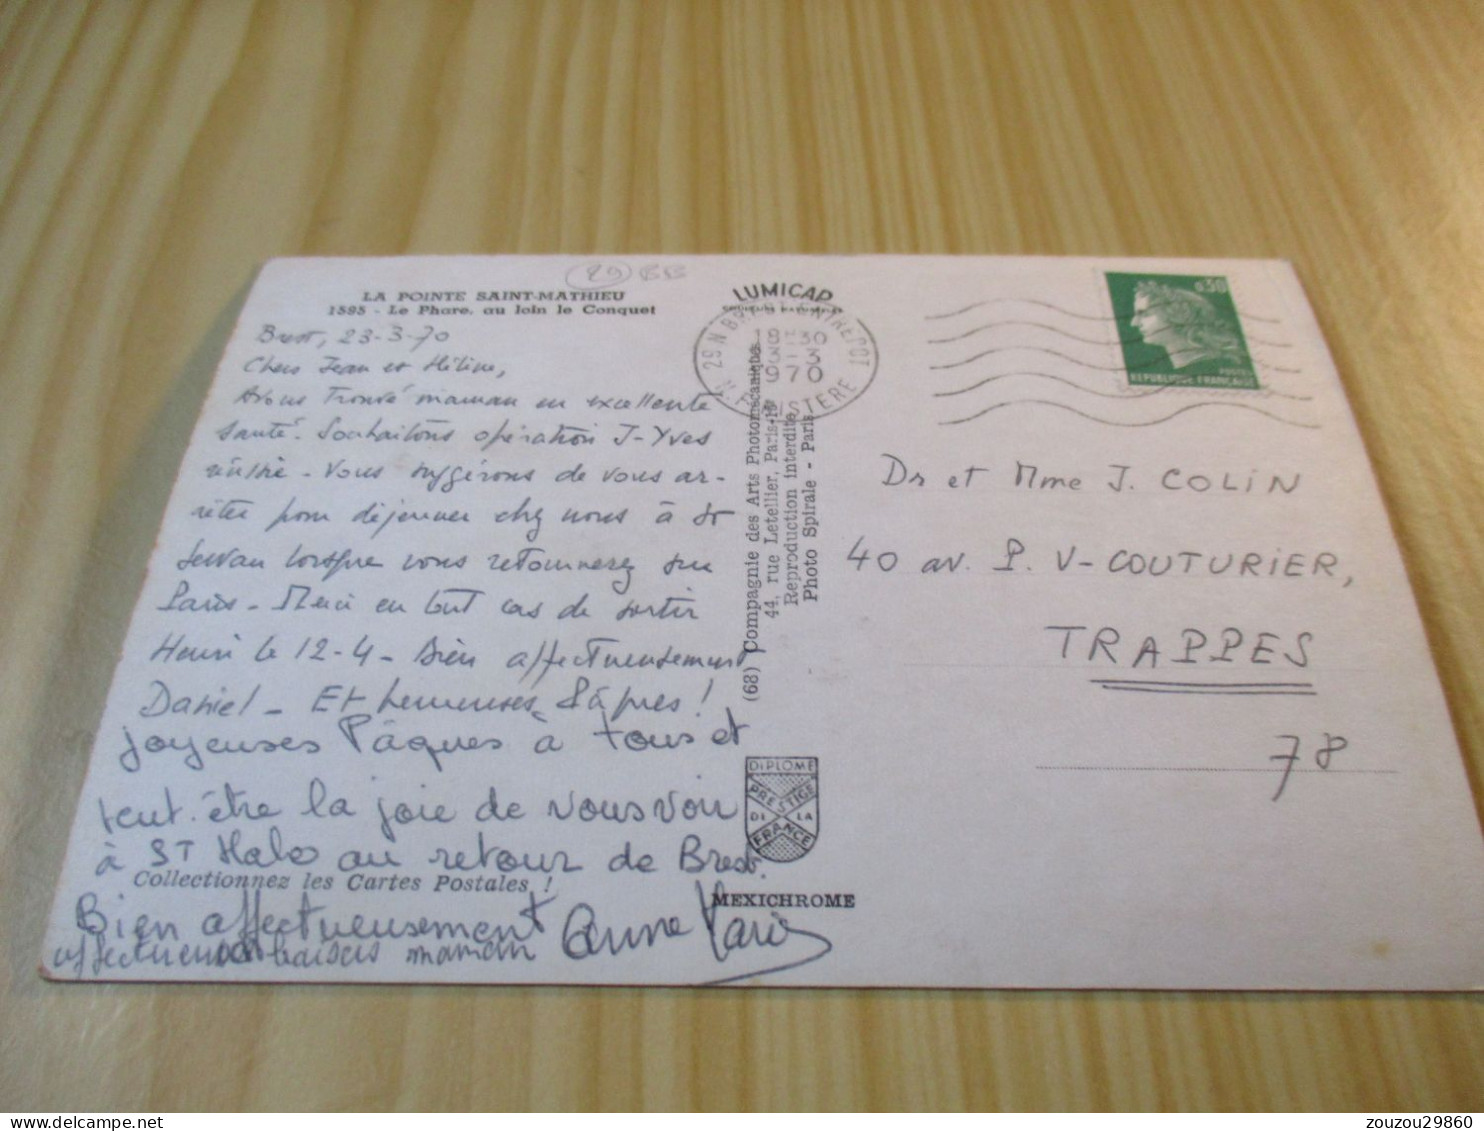 29 BB
LA POINTE SAINT-MATHIEU
1595 - Le Phare, au loin le Conquet
Brest, 23-3-70
Chers Jean et Hélène,
Avons trouvé maman en excellente
santé. Souhaitons opération J-Yves
réussie - Vous suggérons de vous ar-
rêter pour déjeuner chez nous à St
Servan lorsque vous retournerez sur
Paris - Merci en tout cas de sortir
Henri le 12-4 - Bien affectueusement
Daniel - Et heureuses Pâques !
Joyeuses Pâques à tous et
peut-être la joie de vous voir
à St Malo au retour de Brest.
Collectionnez les Cartes Postales !
Bien affectueusement Anne Marie
affectueux baisers maman
LUMICAP
(68) Compagnie des Arts Photomécaniques
44, rue Letellier, Paris-15e
Reproduction interdite
Photo Spirale - Paris
DIPLOME
PRESTIGE
DE LA
FRANCE
MEXICHROME
29 N BREST ENTREPOT
18H30
970
N. FINISTERE
0,30
POSTES
REPUBLIQUE FRANÇAISE
Dr et Mme J. COLIN
40 av. P. V-COUTURIER,
TRAPPES
78
zouzou29860